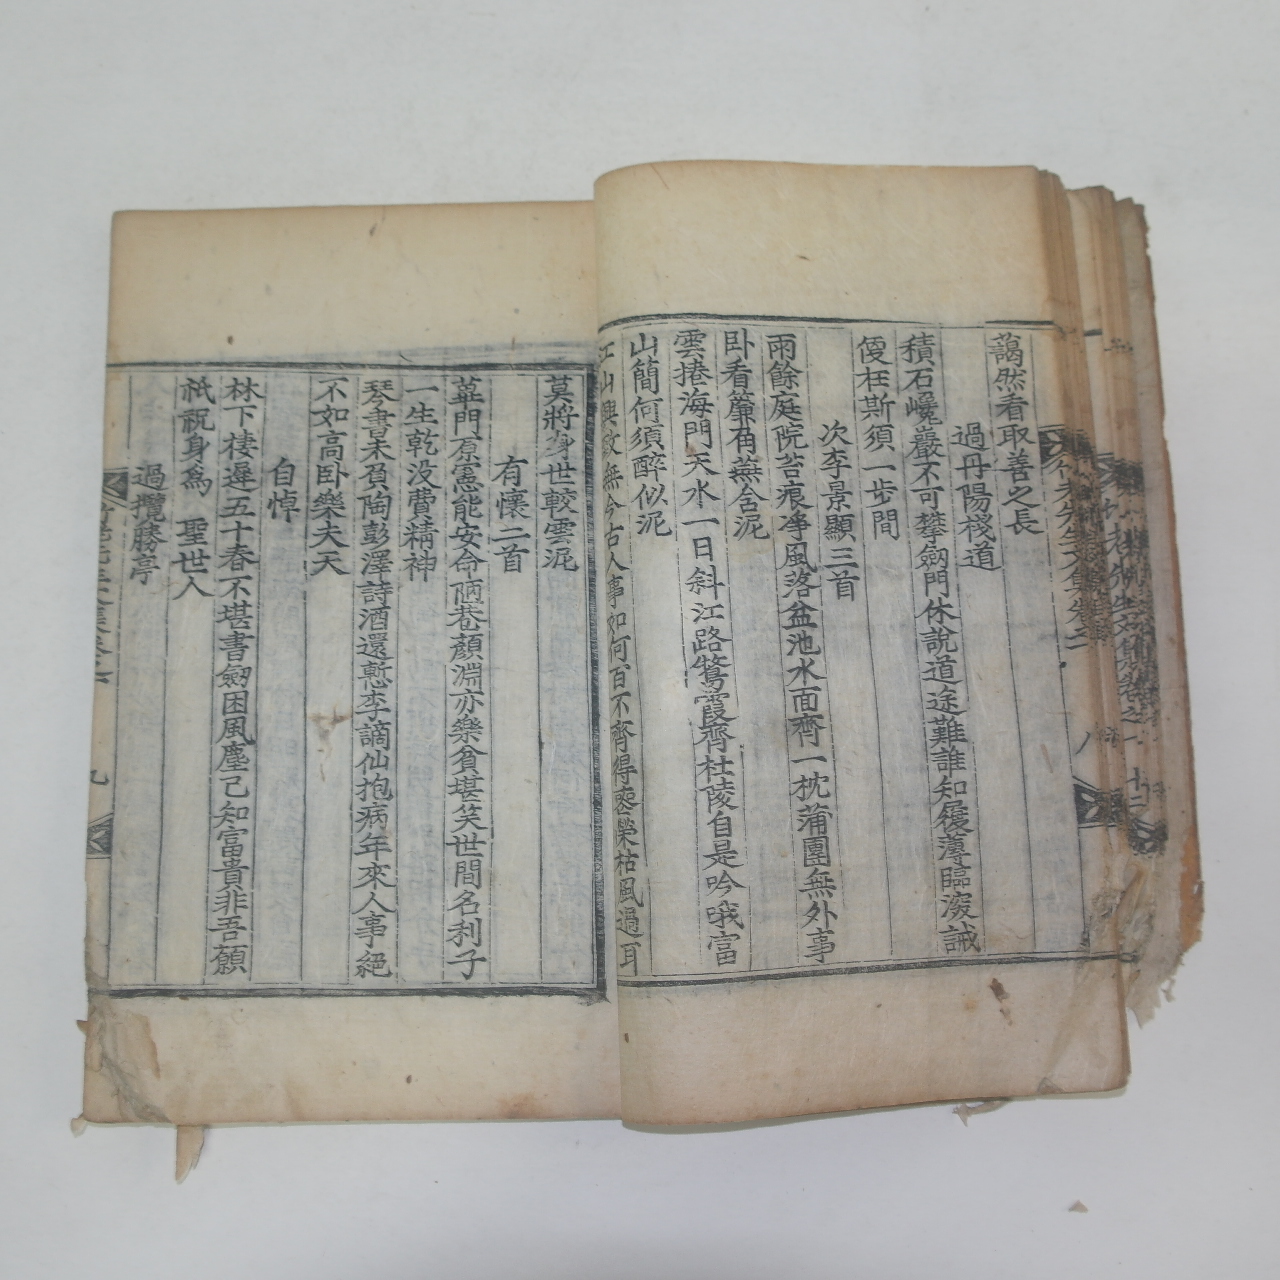 藹然看取善之長
過丹陽棧道
積石巉巖不可攀劒門休說道途難誰知履薄臨深誡
僾枉斯須一步間
次李景顯三首
雨餘庭院苔痕凈風落盆池水面齊一枕蒲團無外事
卧看簾角燕含泥
雲捲海門天水一日斜江路鶩霞齊杜陵自是吟哦富
山簡何須醉似泥
江山興致無今古人事如何百不齊得喪榮枯風過耳
莫將身世較雲泥
有懷二首
蓽門原憲能安命陋巷顔淵亦樂貧堪笑世間名利子
一生乾没費精神
琴書未負陶彭澤詩酒還慙李謫仙抱病年來人事絕
不如高卧樂夫天
自悼
林下棲遲五十春不堪書劒困風塵已知富貴非吾願
祇祝身爲 聖世人
過攬勝亭
九